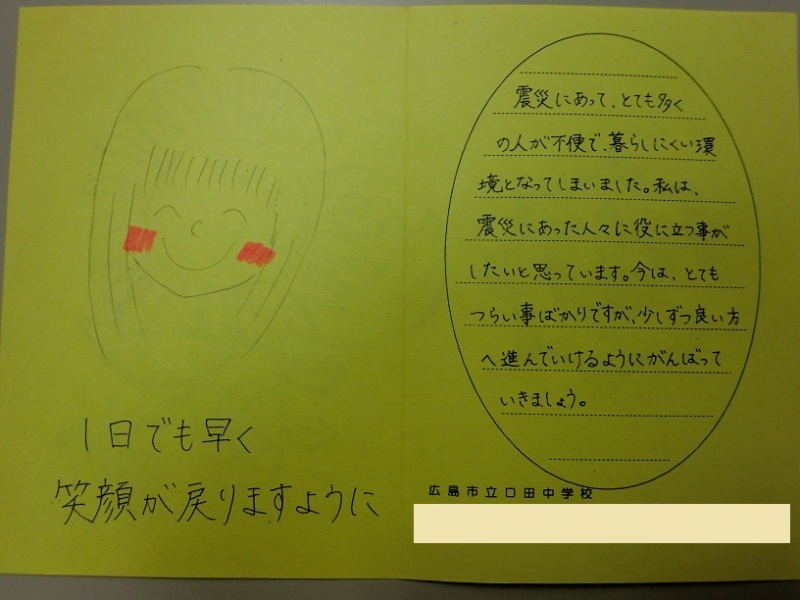 1日でも早く
笑顔が戻りますように
震災にあって、とても多く
の人が不便で、暮らしにくい環
境となってしまいました。私は、
震災にあった人々に役に立つ事が
したいと思っています。今は、とても
つらい事ばかりですが、少しずつ良い方
へ進んでいけるようにがんばって
いきましょう。
広島市立口田中学校